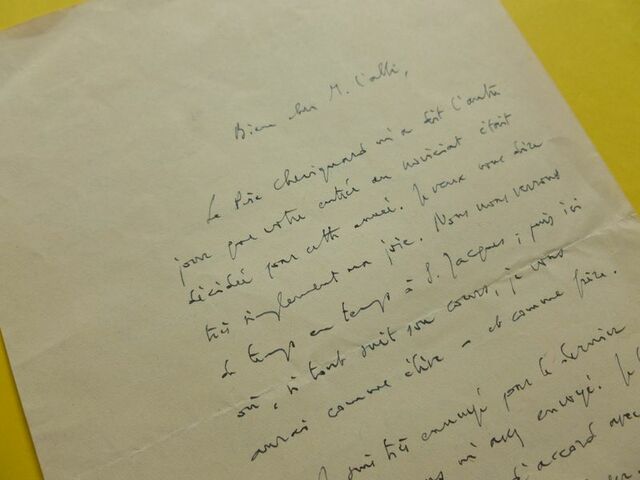 Bien cher M. l'abbé,
Le Père Chevignard m'a dit l'autre
jour que votre entrée au noviciat était
décidée pour cette année. Je veux vous dire
très simplement ma joie. Nous nous verrons
de temps en temps à S. Jacques ; puis ici
où, si tout suit son cours, je vous
aurai comme élève – et comme frère.
suis très ennuyé pour le dernier
m'avez envoyé. Je
d'accord avec